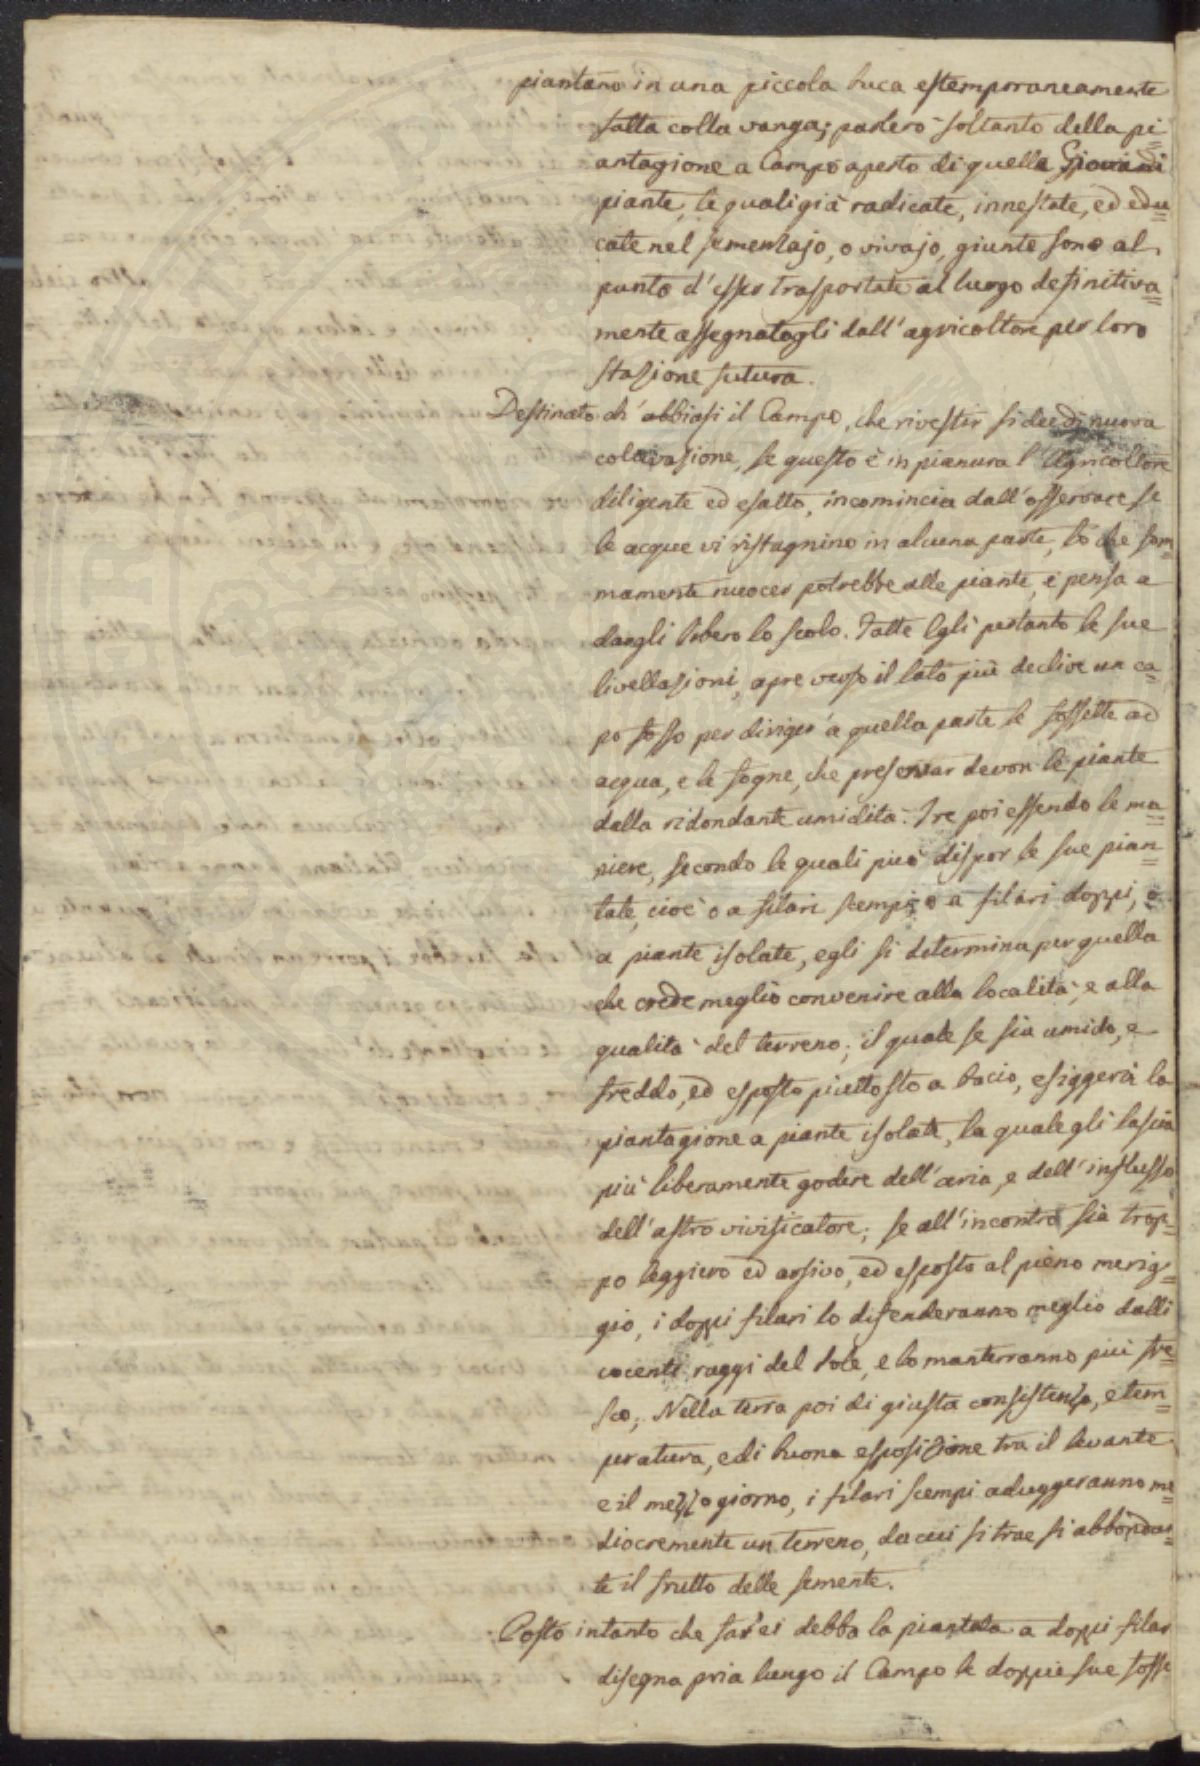 piantano in una piccola buca estemporaneamente
fatta colla vanga; parlerò soltanto della pi=
antagione a Campo aperto di quelle Giovani
piante, le quali già radicate, innestate, ed edu=
cate nel semenzajo, o vivajo, giunte sono al
punto d'esser trasportate al luogo definitiva=
mente assegnatogli dall'agricoltore per loro
stazione futura.
Destinato ch'abbiasi il Campo, che rivestir si dee di nuova
coltivazione, se questo è in pianura l'Agricoltore
diligente ed esatto, incomincia dall'osservare, se
le acque vi ristagnino in alcuna parte, lo che som=
mamente nuocer potrebbe alle piante, e pensa a
dargli libero lo scolo. Fatte Egli pertanto le sue
livellazioni, apre verso il lato più declive un ca=
po fosso per diriger a quella parte le fossette ad
acqua, e le fogne, che preservar devon le piante
dalla ridondante umidità. Tre poi essendo le ma=
niere, secondo le quali può dispor le sue pian=
tate, cioè o a filari scempi, o a filari doppi, o
a piante isolate, egli si determina per quella
che crede meglio convenire alla località, e alla
qualità del terreno; il quale se sia umido, e
freddo, ed esposto piuttosto a bacìo, esiggerà la
piantagione a piante isolate, la quale gli lascia
più liberamente godere dell'aria, e dell'influsso
dell'astro vivificatore; se all'incontro sia trop=
po leggiero ed arsivo, ed esposto al pieno merig=
gio, i doppi filari lo difenderanno meglio dalli
cocenti raggi del Sole, e lo manterranno più fre=
sco; Nella terra poi di giusta consistenza, e tem=
peratura, e di buona esposizione tra il levante
e il mezzogiorno, i filari scempi aduggeranno me=
diocremente un terreno, da cui si trae sì abbondan=
te il frutto delle semente.
Posto intanto che far ei debba la piantata a doppi filar
disegna pria lungo il Campo le doppie sue fosse